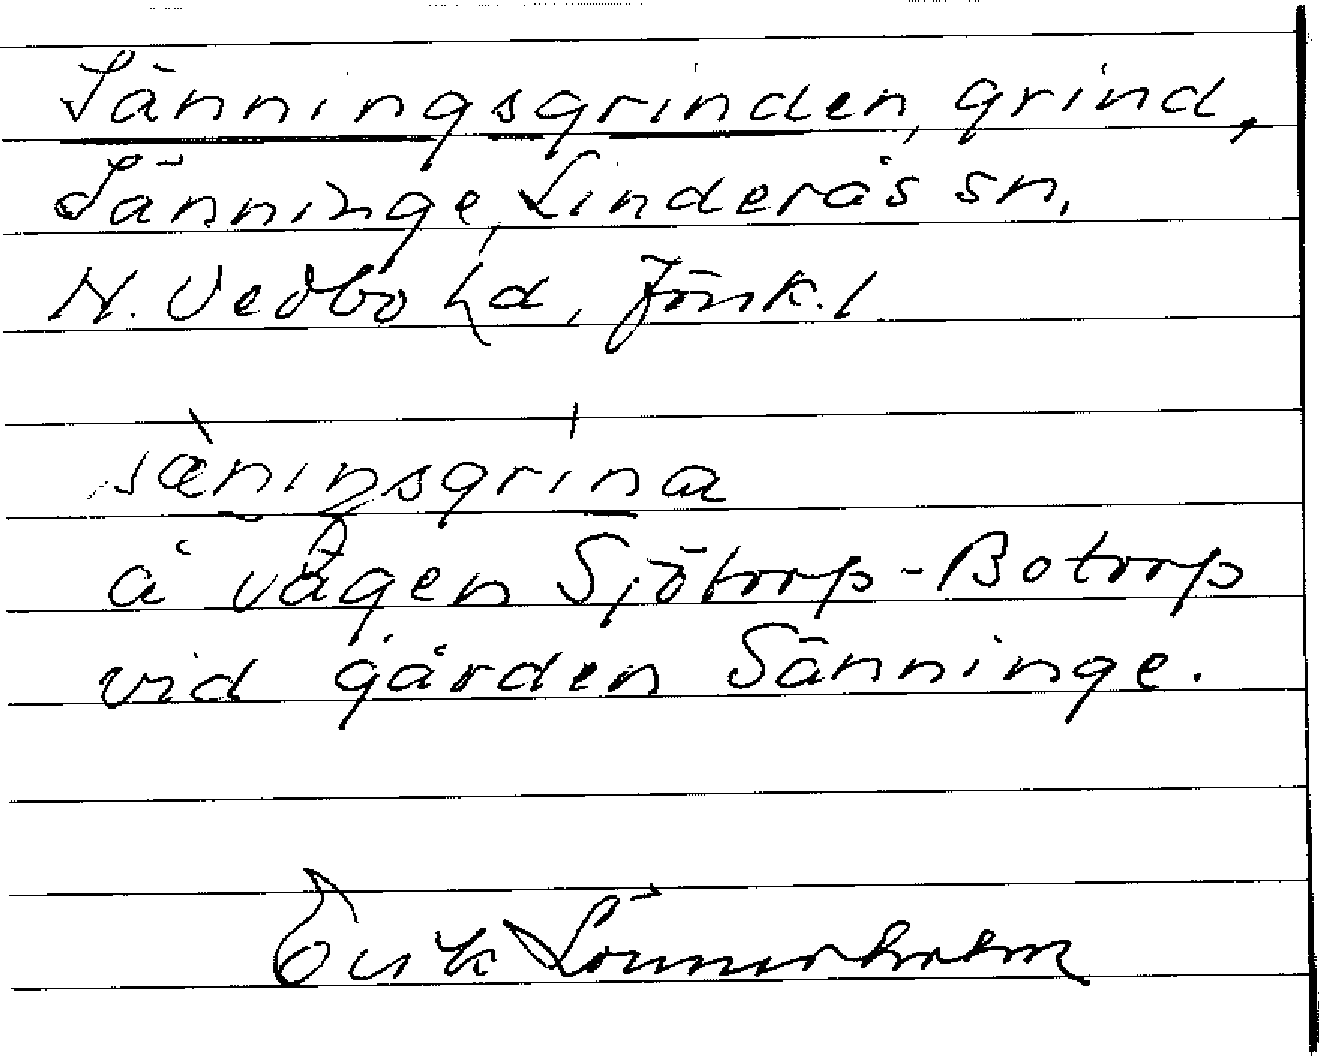 Sänningsgrinden, grind,
Sänninge, Linderås sn,
N. Vedbo hd, Jönk. l
sæningsgrina
å vägen Sjötorp-Botorp
vid gården Sänninge.
Erik Lönnerholm